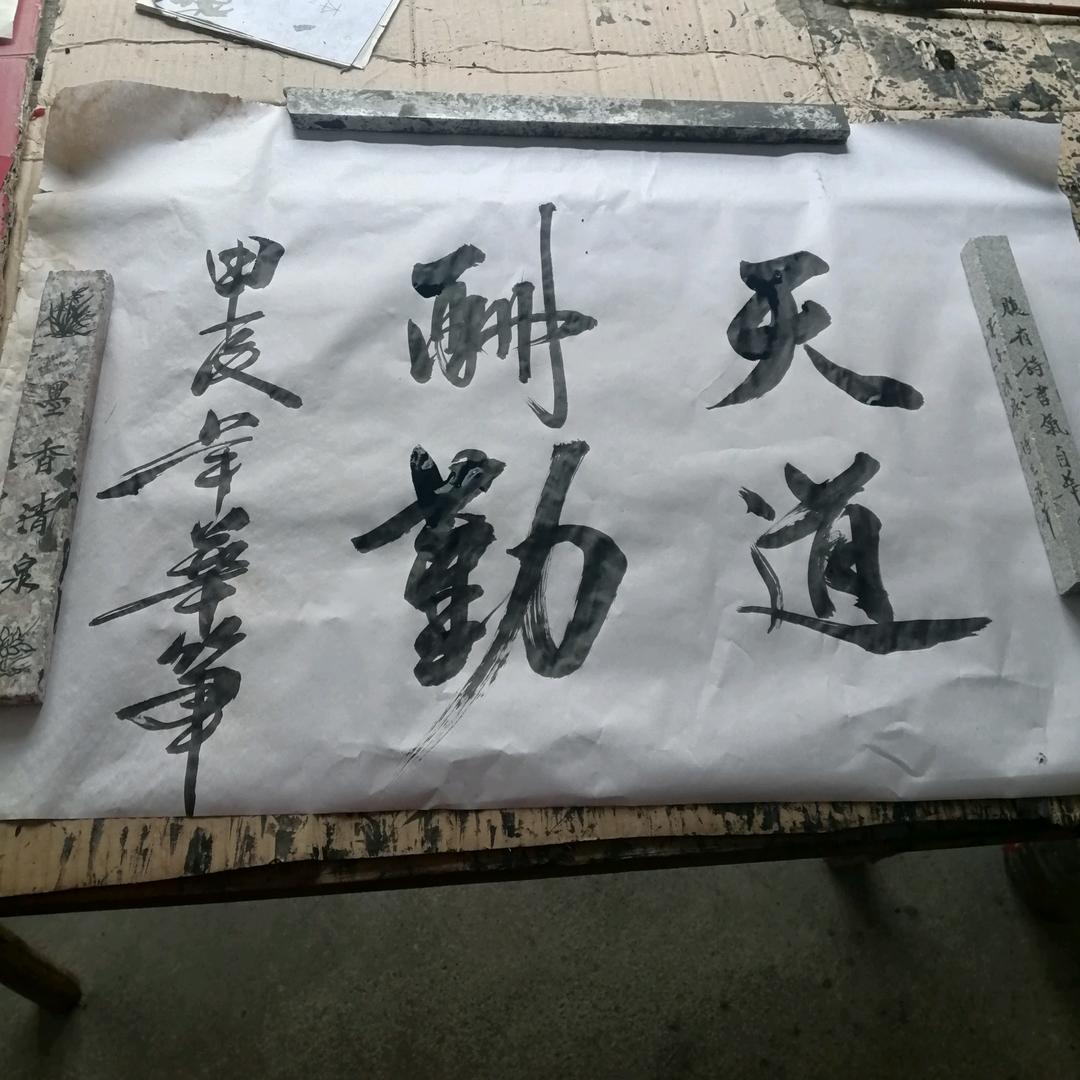 天道
酬勤
甲辰年華筆
墨香清泉
腹有詩書氣自華